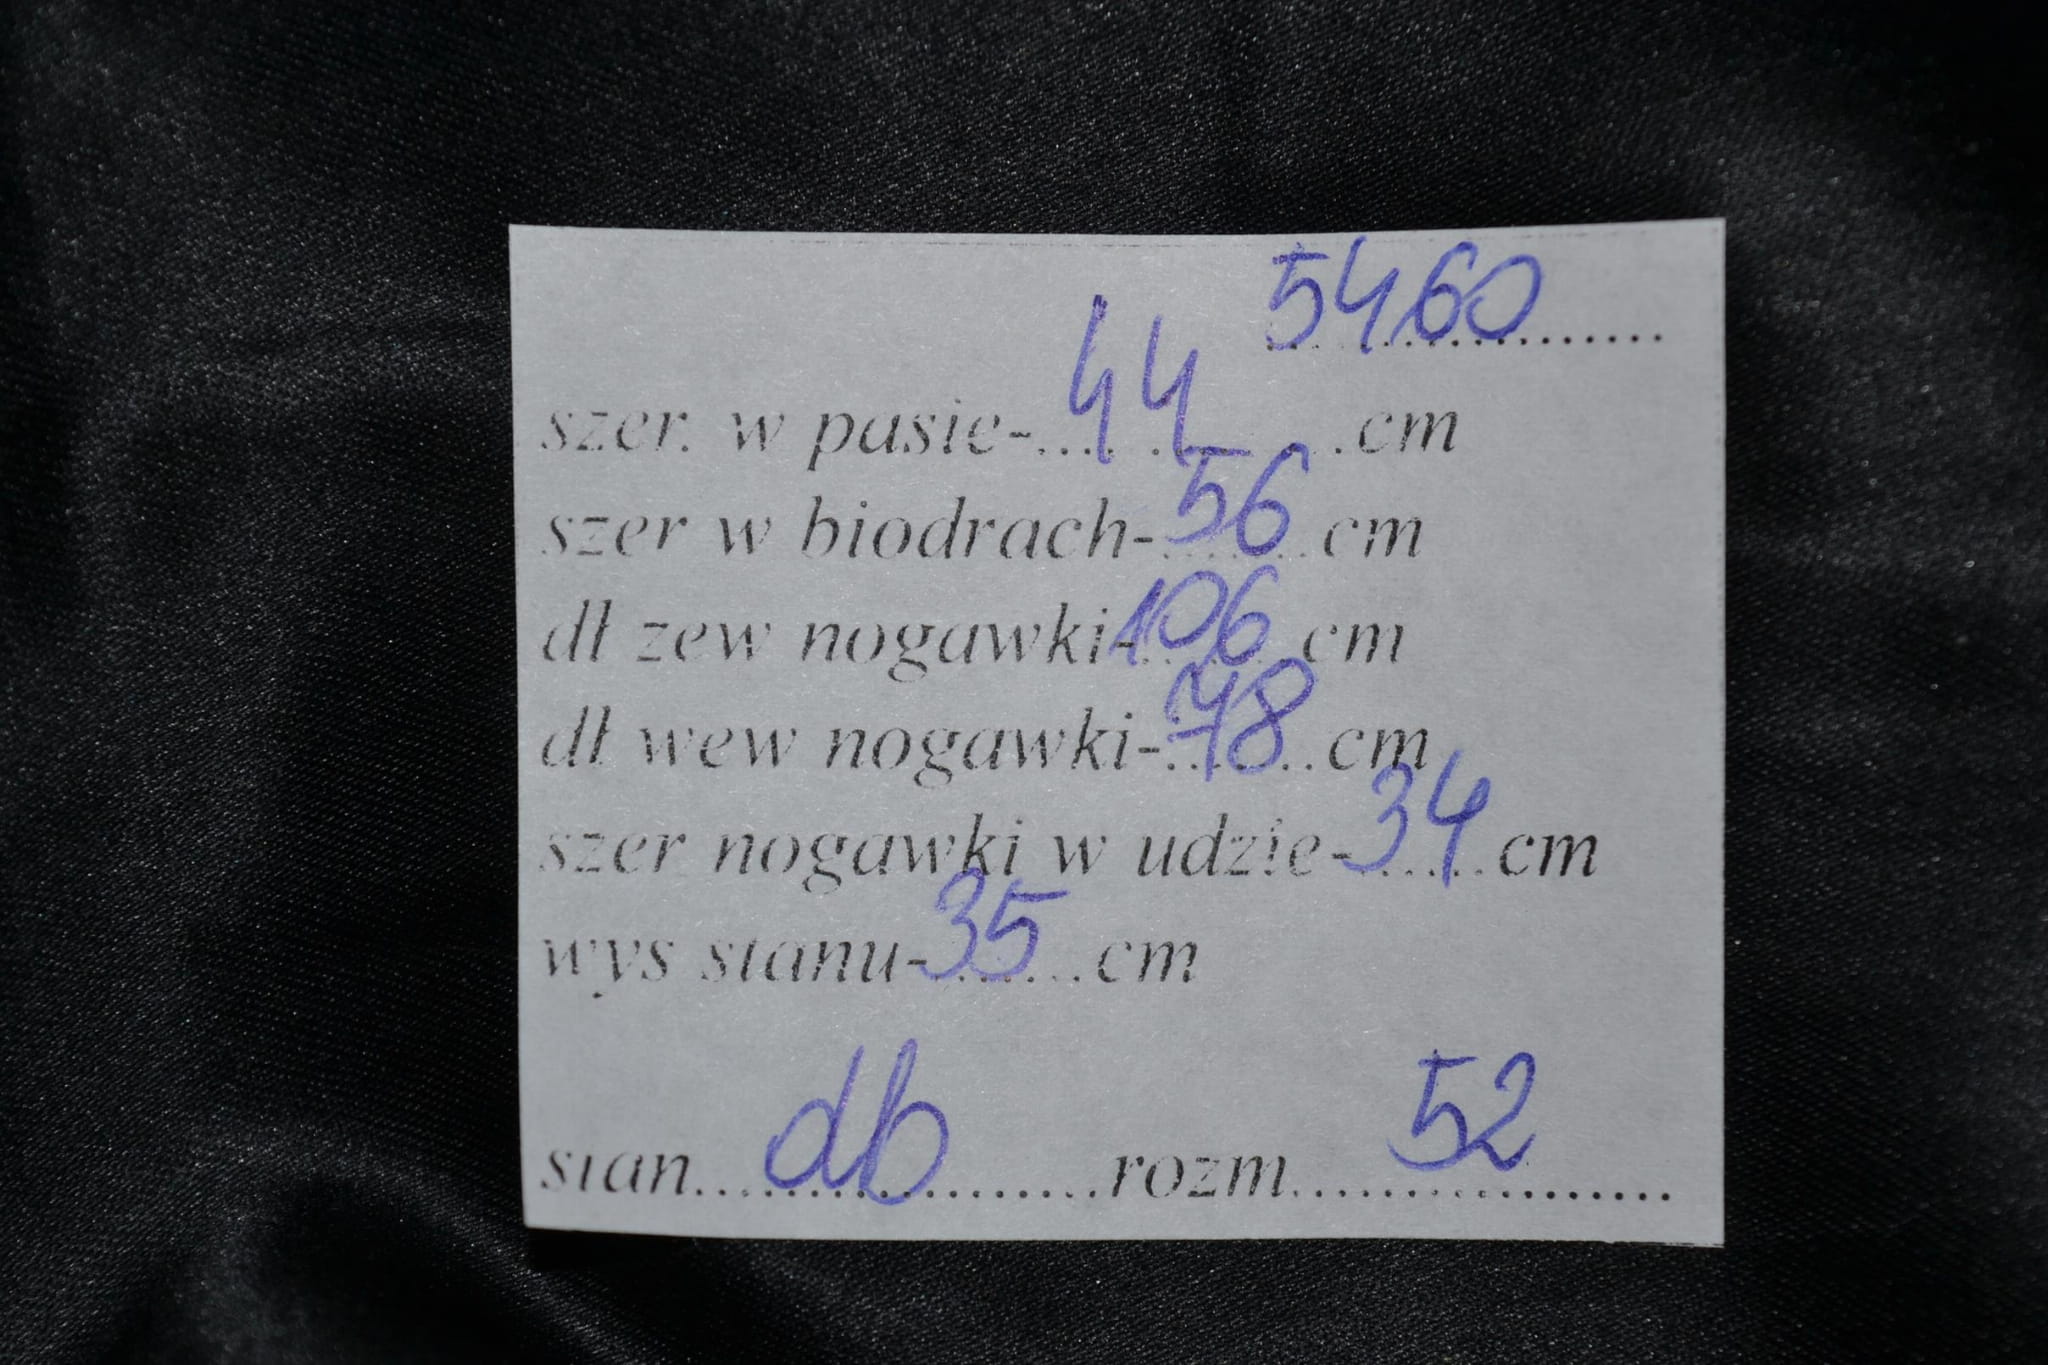 5460..........
szer. w pasie-....44.....cm
szer w biodrach-56...cm
dł zew nogawki-106...cm
dł wew nogawki-78...cm
szer nogawki w udzie-34...cm
wys stanu-35...cm
stan....db..........rozm....52............